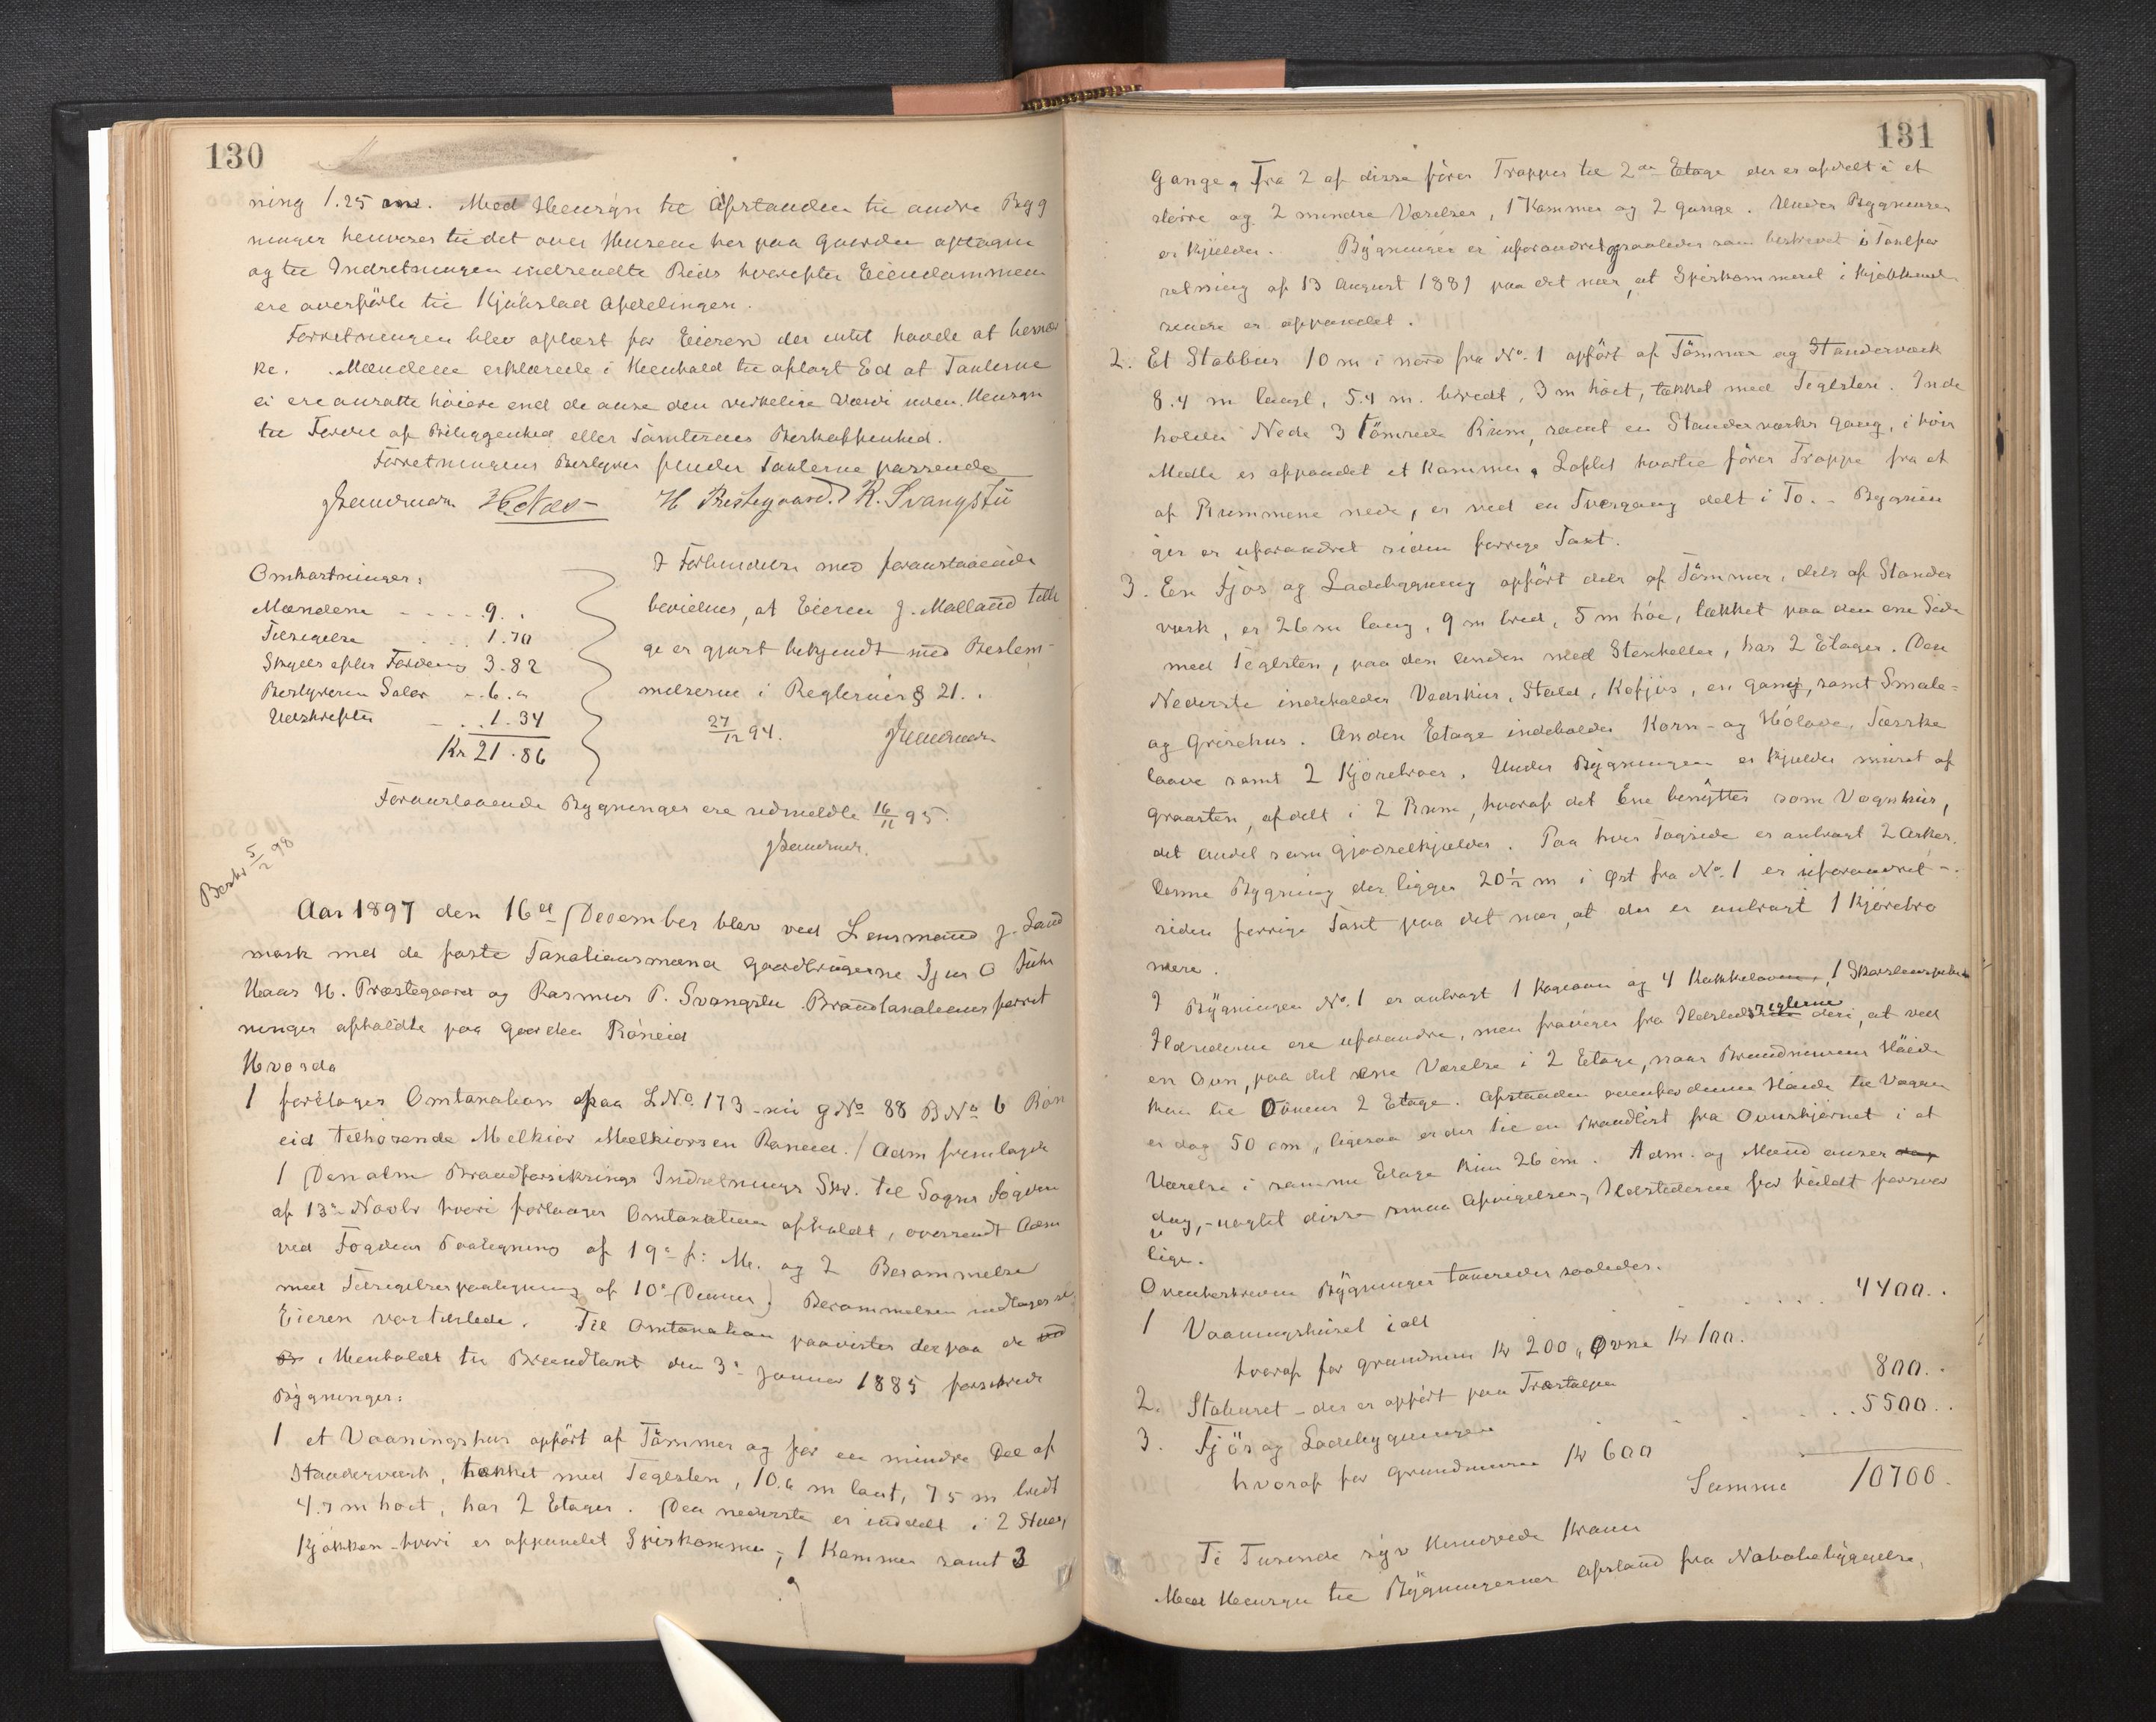 130
ning 1.25 m. Med Hensyn til Afstanden til andre Byg
ninger henvises til det over Husene her paa Gaarden optagne
og til Indretningen indsendte Rids hvorefter Eiendommen
ere overførte til Kjøbstad Afdelingen.
Forretningen blev oplæst for Eieren der intet havde at bemær
ke. Mændene erklærede i Henhold til aflagt Ed at Taxterne
ei ere ansatte høiere end de anse den virkelige Værdi uden Hensyn
til Fordel af Beliggenhed eller Tomternes Beskaffenhed.
Forretningens Bestyrer finder Taxterne passende
H. Præstegaard. R. Svangstu
Omkostninger:
Mændene - - - - 9.
Tilsigelse 1.70
Skyds efter Fordeling 3.82
Bestyreren Salær - 6.
Udskrifter 1.34
Kr 21.86
I Forbindelse med foranstaaende
bevidnes, at Eieren J. Molland tillige
er gjort bekjendt med Bestem-
melserne i Reglernes § 21.
27/12 94.
Foranstaaende Bygninger ere udmeldte 16/11 95.
Beskr 5/2 98
Aar 1897 den 16de December blev ved Lensmand J. Sand
mark med de faste Taxationsmænd Gaardbrugerne Sjur O
Haas H. Præstegaard og Rasmus P. Svangstu Brandtaxationsforret
ninger afholdte paa Gaarden Røneid
Hvorda
1 foretages Omtaxation paa LNo. 173 - nu gNo 88 BNo 6 Røn
eid tilhørende Melkior Melkiorsen Røneid. / Adm fremlagde
1 Den alm Brandforsikrings Indretnings Skr. til Sogns Fogderi
af 13de Novbr hvori forlanges Omtaxation afholdt, oversendt Adm
ved Fogdens Paategning af 19de f: M. og 2 Berammelse
med Tilsigelsespaategning af 10de Dennes). Berammelsen medtages
Eieren var tilstede. Til Omtaxation paavistes derpaa de
i Henhold til Brandtaxt den 3de Januar 1885 forsikrede
Bygninger:
1 et Vaaningshus opført af Tømmer og for en mindre Del af
Standerværk, tækket med Teglsten, 10.6 m langt, 7.5 m bredt
4.7 m høit, har 2 Etager. Den nederste er inddelt i 2 Stuer,
Kjøkken - hvori er afpanelet Spiskammer -, 1 Kammer samt 3
131
Gange, Fra 2 af disse fører Trapper til 2den Etage der er afdelt i et
større og 2 mindre Værelser, 1 Kammer og 2 Gange. Under Bygningen
er Kjelder. Bygningen er uforandret saaledes som beskrevet i Taxtfor
retning af 13 August 1881 paa det nær, at Spiskammeret i Kjøkkenet
senere er afpanelet.
2. Et Stabbur 10 m i nord fra No. 1 opført af Tømmer og Standerværk
8.4 m langt, 5.4 m. bredt, 3 m høit, tækket med Teglsten. Inde
holder Nede 3 Tømrede Rum, samt en Standerværks Gang, i hvis
Midte er afpanelet et Kammer, Loftet hvortil fører Trappe fra et
af Rummene nede, er ved en Tvergang delt i To. - Bygnin
gen er uforandret siden forrige Taxt.
3. En Fjøs og Ladebygning opført dels af Tømmer, dels af Stander
værk, er 26 m lang, 9 m bred, 5 m høi, tækket paa den ene Side
med Teglsten, paa den anden med Stenheller, har 2 Etager. Den
Nederste indeholder Vedskur, Stald, Kofjøs, en Gang, samt Smale-
og Grisehus. Anden Etage indeholder Korn- og Hølade, Tærske
laave samt 2 Kjørebroer. Under Bygningen er Kjelder muret af
Graasten, afdelt i 2 Rum, hvoraf det Ene benyttes som Vognskur,
det andet som Gjødselkjelder. Paa hver Tagside er anbragt 2 Arker.
Denne Bygning der ligger 20½ m i Øst fra No. 1 er uforandret
siden forrige Taxt paa det nær, at der er anbragt 1 Kjørebro
mere.
I Bygningen No. 1 er anbragt 1 Kogeovn og 4 Kakkelovne, 1 Skorstenspibe
Ildstederne ere uforandre, men fraviger fra Ildstedsreglerne deri, at ved
en Ovn, paa det ene Værelse i 2 Etage, naar Brandmurens Høide
kun til Ovnens 2 Etage. Afstanden ovenfor denne Høide til Væggen
er dog 50 cm, ligesaa er der til en Brandlist fra Ovnshjørnet i et
Værelse i samme Etage kun 26 cm. Adm. og Mænd anser
dog, - uagtet disse smaa Afvigelser, Ildstederne for fuldt forsvar
lige.
Ovenbeskrevne Bygninger taxeredes saaledes.
1 Vaaningshuset ialt 4400.
hvoraf for Grundmur Kr 200, Ovne Kr 100.
2. Staburet - der er opført paa Træstolper 800.
3. Fjøs og Ladebygningen 5500.
hvoraf for Grundmuren Kr 600
Summa 10700.
Ti Tusinde syv Hundrede Kroner
Med Hensyn til Bygningernes Afstand fra Nabobebyggelse,